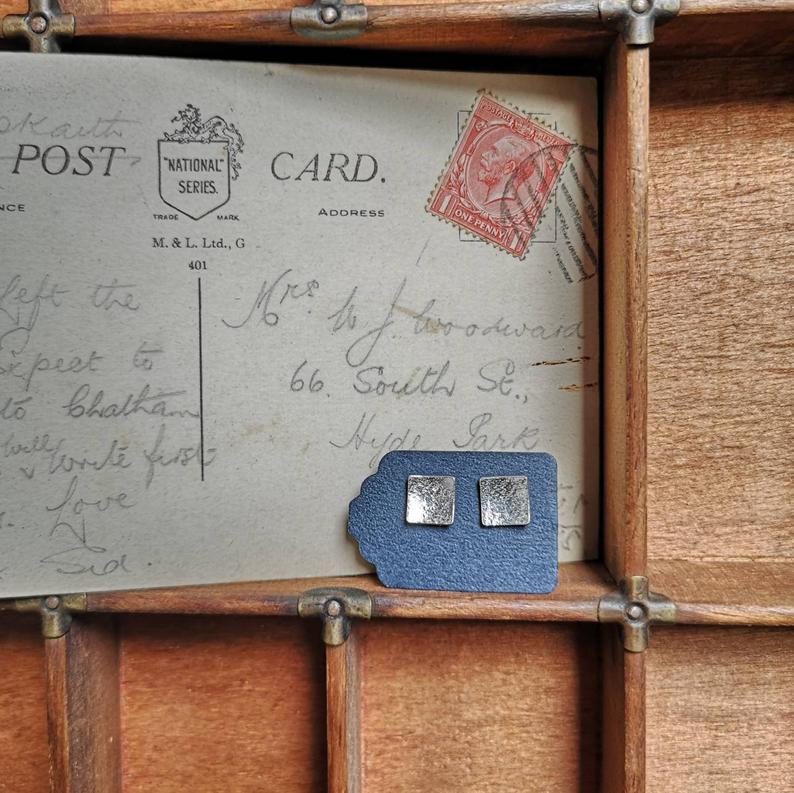 POST CARD.
"NATIONAL"
SERIES.
TRADE MARK
ADDRESS
M. & L. Ltd., G
401
POSTAGE
ONE PENNY
1 1
Left the
Expect to
to Chatham
will
write first
Love
Sid.
Mrs W J. Woodward
66. South St.,
Hyde Park